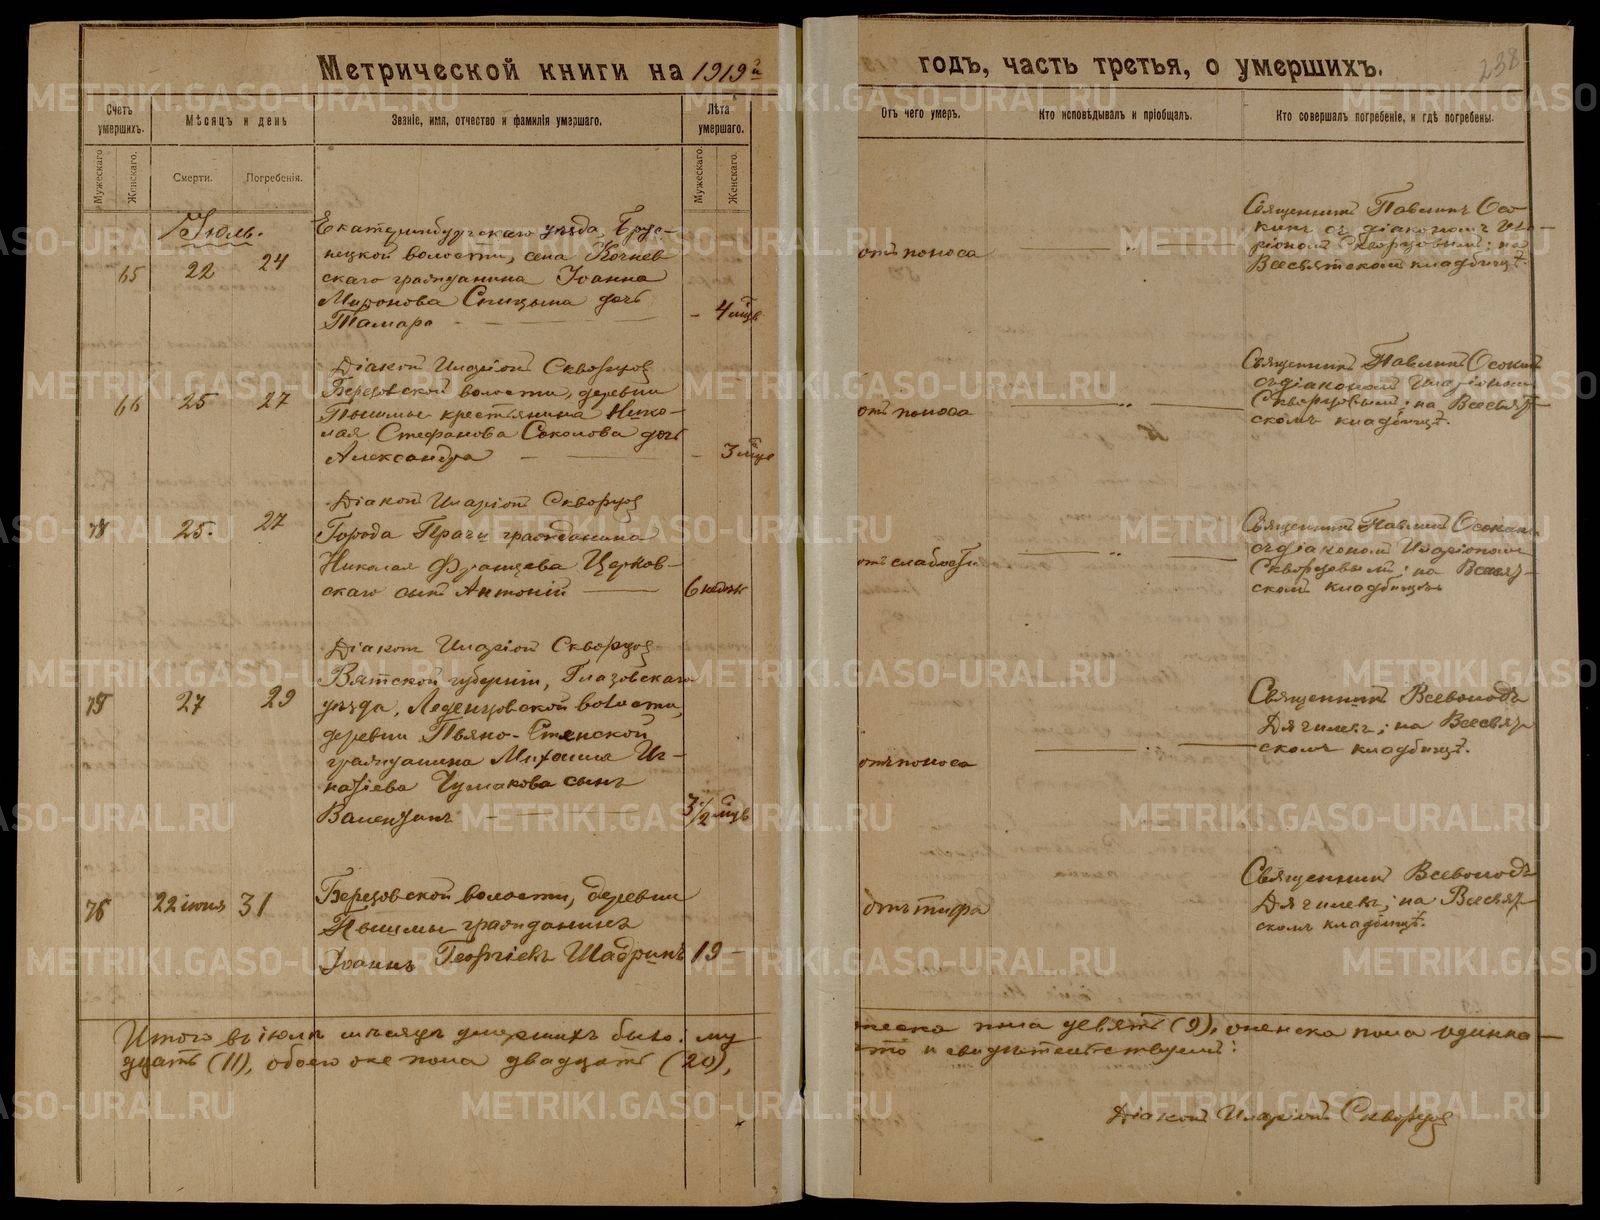 Метрической книги на 1919й годъ, часть третья, о умершихъ.
238
Счетъ умершихъ.
Мѣсяцъ и день
Званіе, имя, отчество и фамилія умершаго.
Лѣта умершаго.
Отъ чего умеръ.
Кто исповѣдывалъ и пріобщалъ.
Кто совершалъ погребеніе, и гдѣ погребены.
Мужескаго
Женскаго.
Смерти.
Погребенія.
Мужескаго.
Женскаго.
Іюль.
65 22 24
Екатеринбургскаго уѣзда, Брус-
ницкой волости, села
скаго гражданина Іоанна
Миронова Спицына дочь
Тамара
4 мцв
отъ поноса
Священникъ Павлинъ Осо
кинъ съ діакономъ Ила-
ріономъ Скворцовымъ; на
Всесвятскомъ кладбищѣ.
Діаконъ Иларіонъ Скворцовъ
66 25 27
Березовской волости, деревни
Пышмы крестьянина Нико-
лая Стефанова Соколова дочь
Александра
3 мце
отъ поноса
Священникъ Павлинъ Осокинъ
съ діакономъ Иларіономъ
Скворцовымъ; на Всесвят-
скомъ кладбищѣ.
Діаконъ Иларіонъ Скворцовъ
25. 27
Города Праги гражданина
Николая Францева Церков-
скаго сынъ Антоній
6 недѣль
отъ слабости
Священникъ Павлинъ Осокинъ
съ діакономъ Иларіономъ
Скворцовымъ; на Всесвят-
скомъ кладбищѣ
Діаконъ Иларіонъ Скворцовъ
75 27 29
Вятской губерніи, Глазовскаго
уѣзда, Леденцовской волости,
деревни Пьяно-
гражданина Михаила Иг-
натіева Чумакова сынъ
Валентинъ
3 1/2 мцв
отъ поноса
Священникъ Всеволодъ
Дягилевъ; на Всесвят-
скомъ кладбищѣ.
76 22 іюня 31
Березовской волости, деревни
Пышмы гражданинъ
Іоаннъ Георгіевъ Шадринъ
19
отъ тифа
Священникъ Всеволодъ
Дягилевъ; на Всесвят-
скомъ кладбищѣ.
Итого въ іюлѣ мѣсяцѣ умершихъ было: му жеска пола девять (9), женска пола одинна-
дцать (11), обоего же пола двадцать (20), что и свидѣтельствуемъ:
Діаконъ Иларіонъ Скворцовъ
METRIKI.GASO-URAL.RU